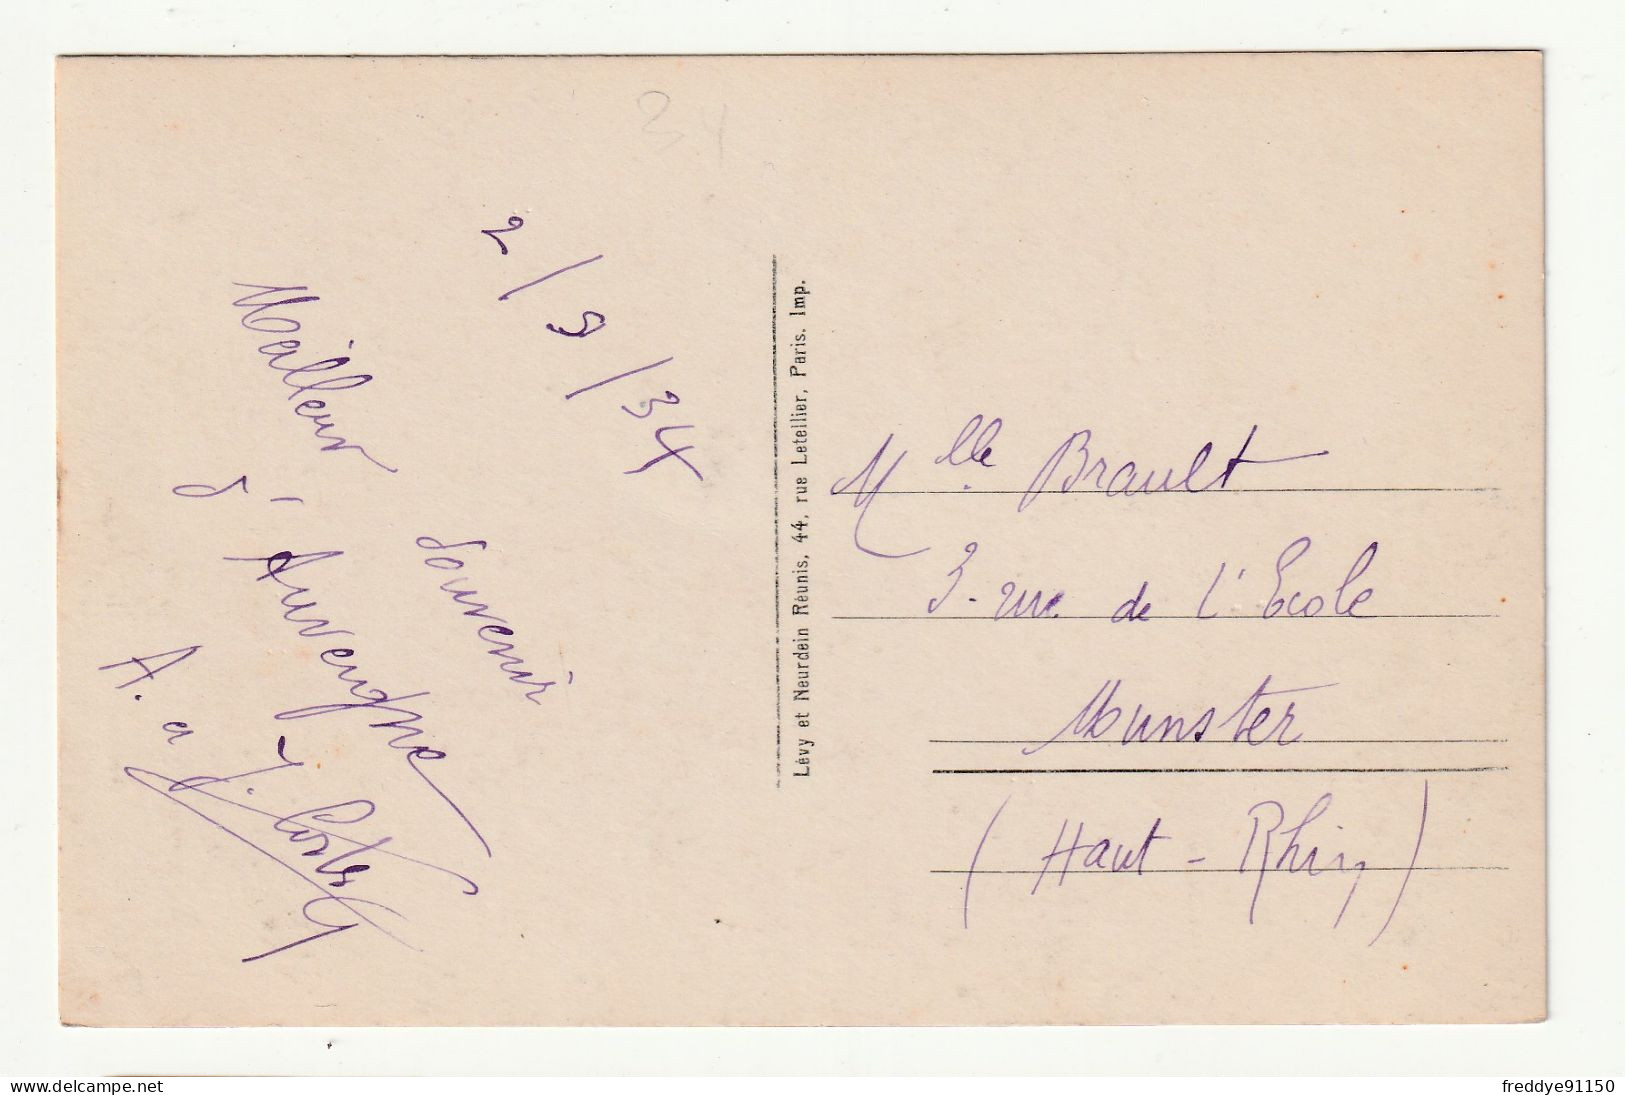 34
2/9/34
Meilleur souvenir
d'Auvergne
A. et J.
Lévy et Neurdein Réunis, 44, rue Letellier, Paris. Imp.
Mlle. Brault
3. rue de l'Ecole
Munster
(Haut-Rhin)
delcampe.net
freddye91150